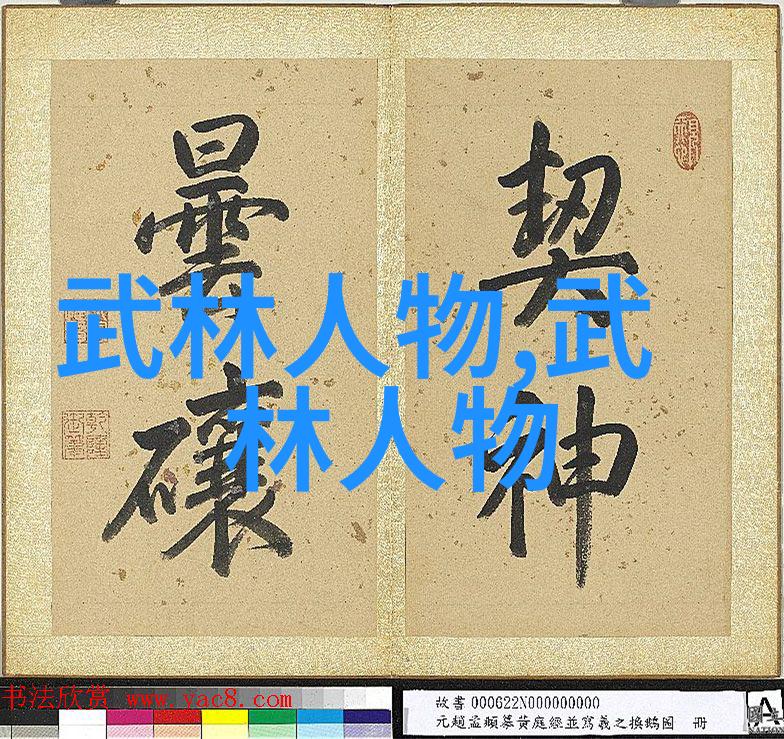 契神
曇
武林人物,武
林人物
乾隆
御筆
书法欣赏 www.yac8.com
故書 000622N000000000
元趙孟頫摹黃庭經並寫羲之換鵝圖 冊